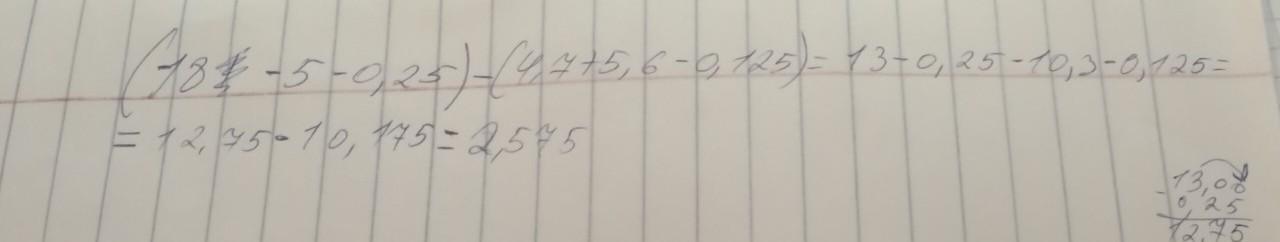 (18 - 5 - 0,25) - (4,7+5,6 - 0,125) = 13 - 0,25 - 10,3 - 0,125 =
= 12,75 - 10,175 = 2,575
- 13,00
0,25
12,75